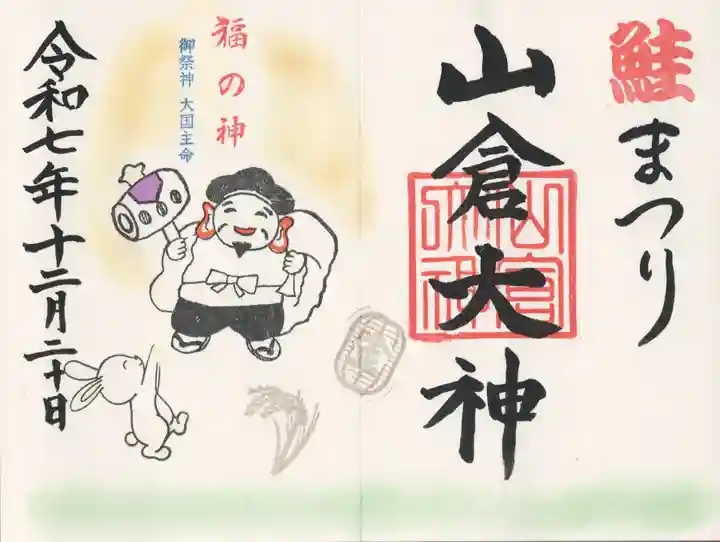 鮭まつり
山倉大神
山倉大神
福の神
御祭神 大国主命
令和七年十二月二十日